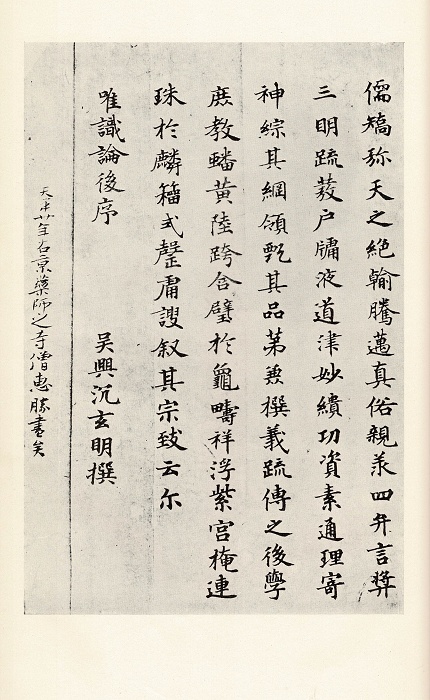 儒矯弥天之絶輸騰邁真俗親羕四弁言弉
三明疏莪户牖液道津妙績功資素通理寄
神綜其綱領甄其品第兼撰義疏傳之後學
庶教蟠黄陸跨合璧於龜疇祥浮紫宮掩連
珠於麟籀式罄庸謏叙其宗致云尓
唯識論後序　吴興沉玄明撰
天平廿年右京藥師之寺僧惠勝書矣